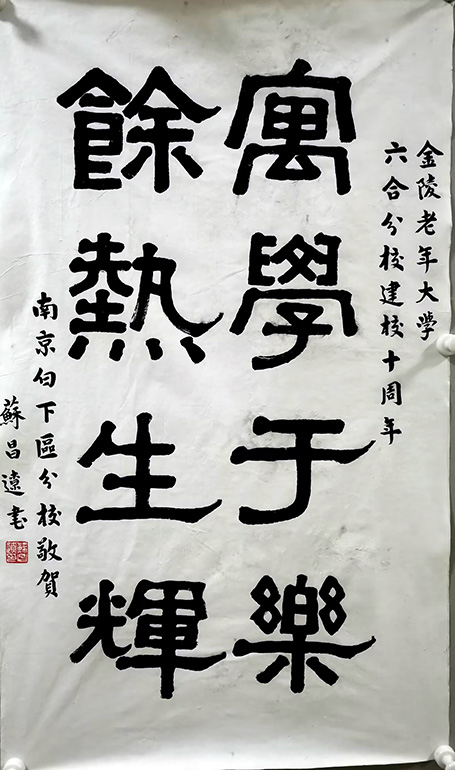 金陵老年大學
六合分校建校十周年
寓學于樂
餘熱生輝
南京白下區分校敬賀
蘇昌遠书